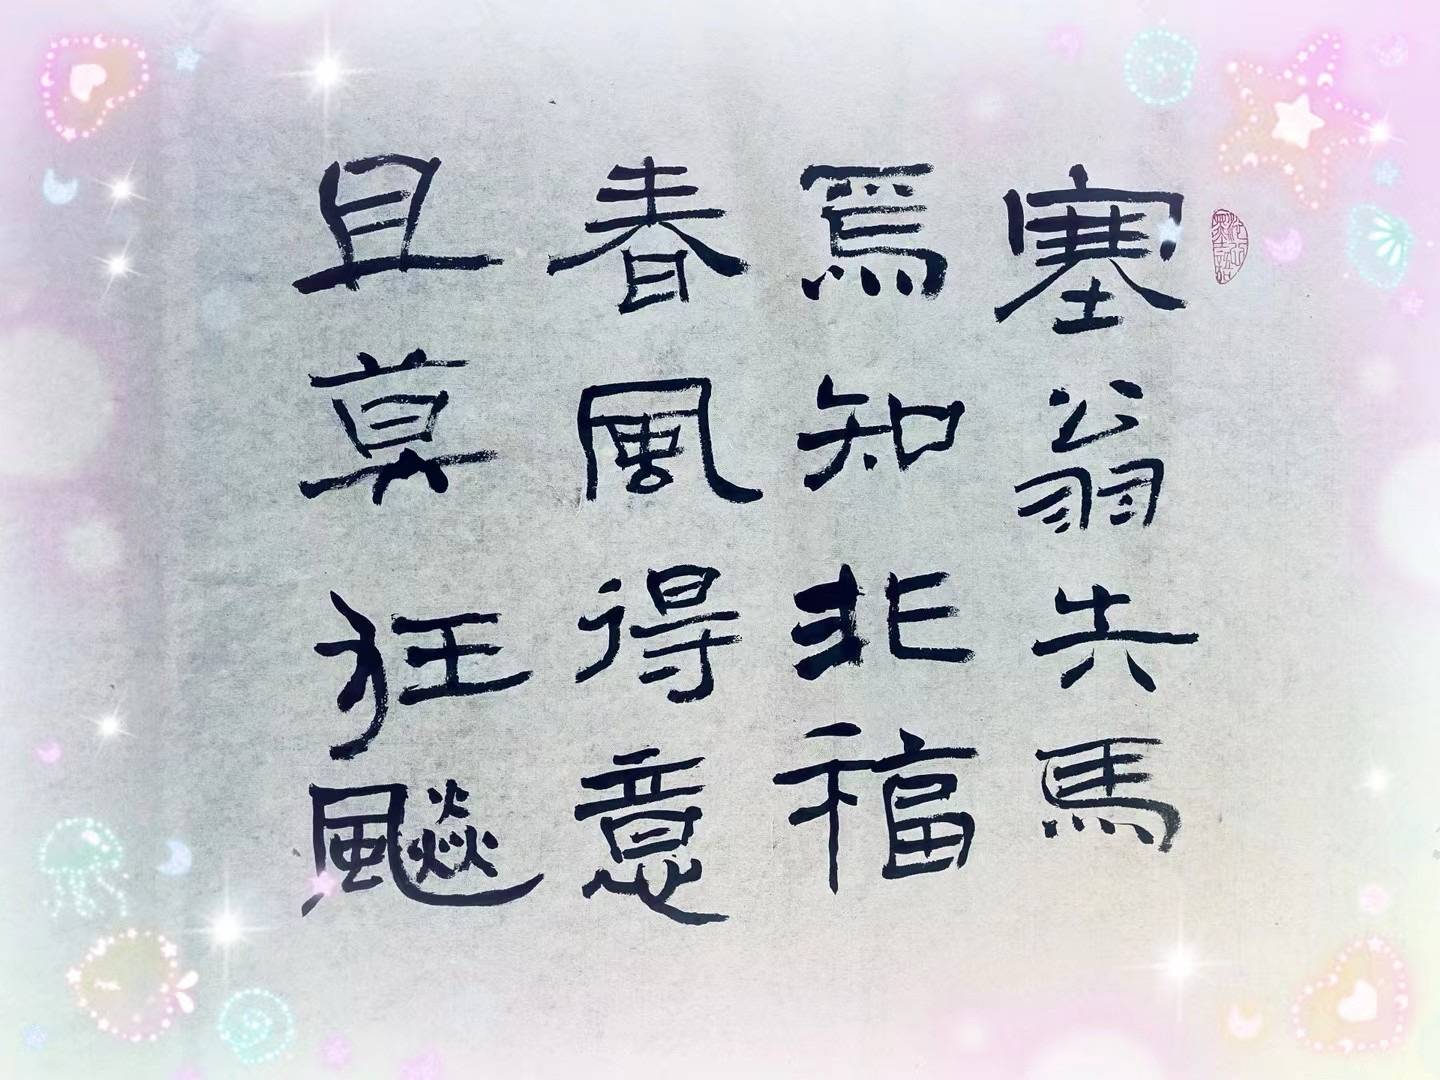 塞翁失馬
焉知非福
春風得意
且莫狂飇